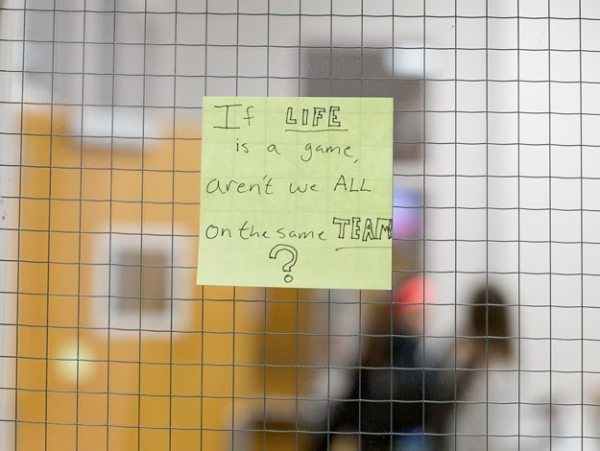 If LIFE
is a game,
aren't we ALL
on the same TEAM
?